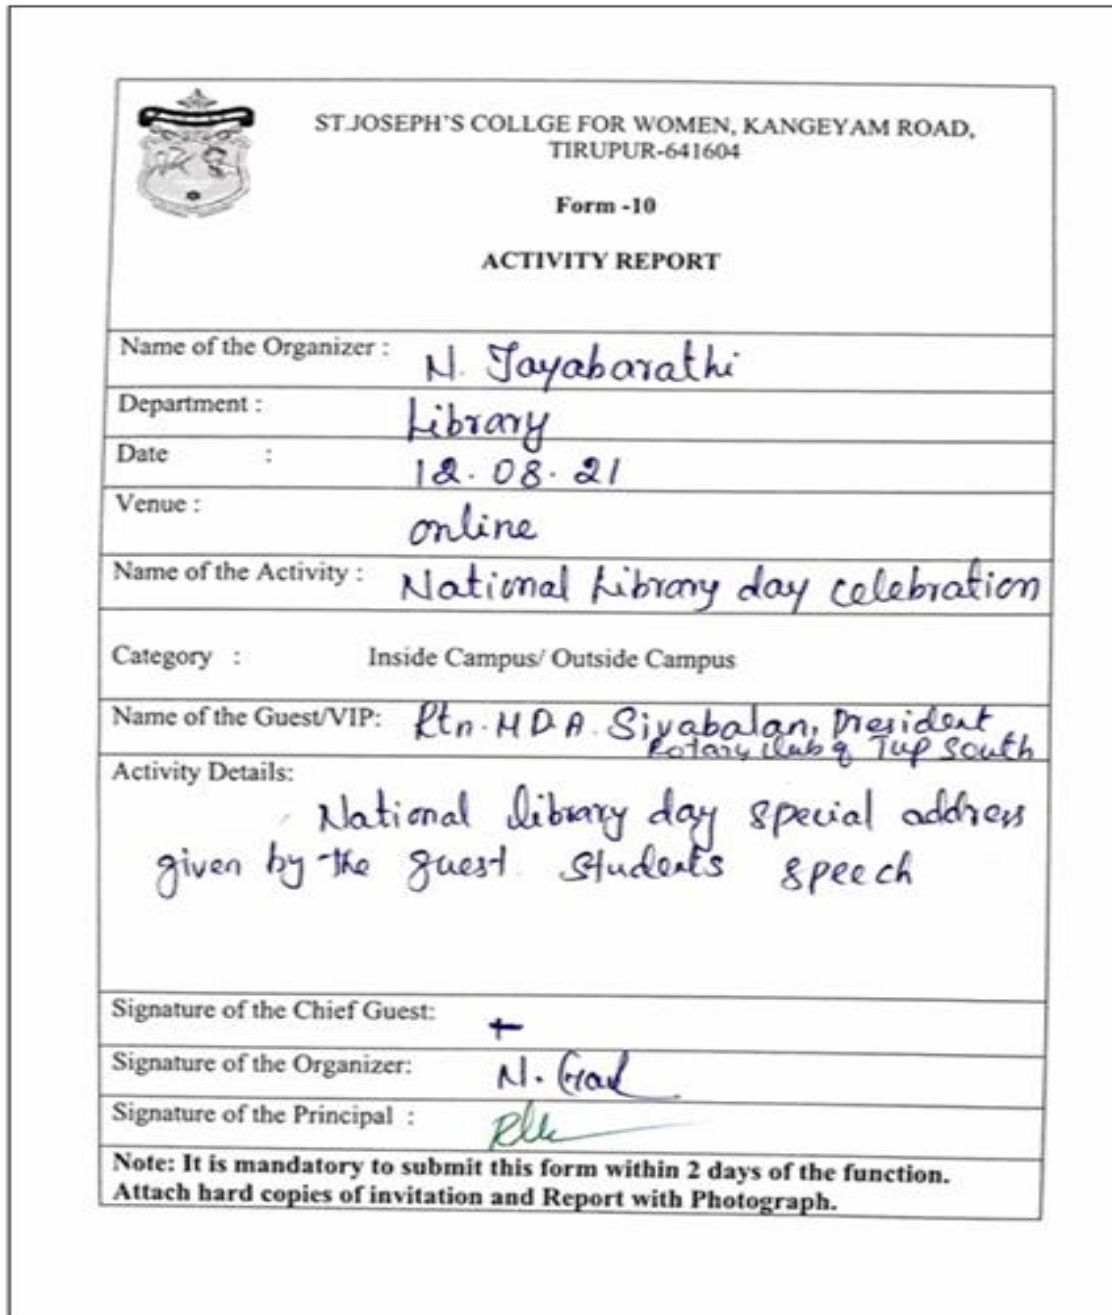 ST.JOSEPH'S COLLGE FOR WOMEN, KANGEYAM ROAD,
TIRUPUR-641604
Form -10
ACTIVITY REPORT
Name of the Organizer : N. Jayabarathi
Department : Library
Date : 12.08.21
Venue : online
Name of the Activity : National Library day celebration
Category : Inside Campus/ Outside Campus
Name of the Guest/VIP: Rtn. M.D.A. Sivabalan, President
Rotary club of Tup South
Activity Details:
National library day special address
given by the guest. Students speech
Signature of the Chief Guest:
Signature of the Organizer: N.
Signature of the Principal :
Note: It is mandatory to submit this form within 2 days of the function.
Attach hard copies of invitation and Report with Photograph.